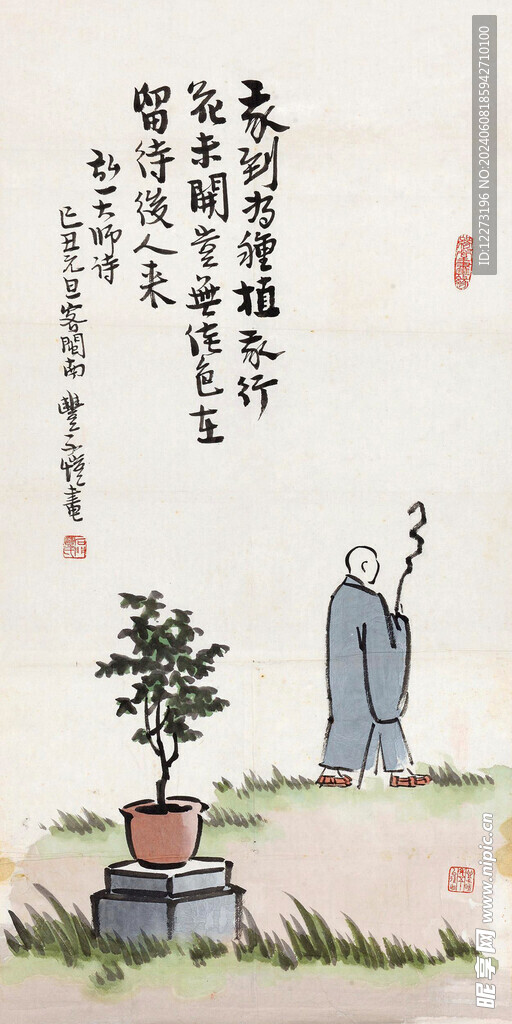 我到为種植我行
花未開豈無佳色在
留待後人来
弘一大師詩
己丑元旦客閩南 豐子愷畫
ID:12273196 NO:20240608185942710100
昵享网 www.nipic.cn